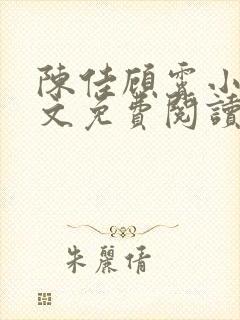 陳佳顧霆小
文免費閱讀
朱麗倩